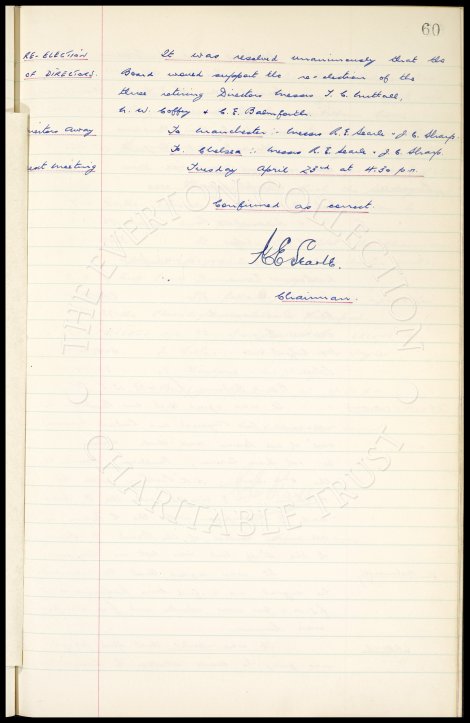 60
RE-ELECTION It was resolved unanimously that the
OF DIRECTORS. Board would support the re-election of the
three retiring Directors Messrs T. C. Nuttall,
W. Coffey & C. E. Balmforth.
Directors Away To Manchester :- Messrs R. E. Searle & J. C. Sharp.
To Chelsea :- Messrs R. E. Searle & J. C. Sharp.
Next Meeting Tuesday April 23rd at 4.30 p.m.
Confirmed as correct.
R E Searle.
Chairman.
THE EVERTON COLLECTION
CHARITABLE TRUST